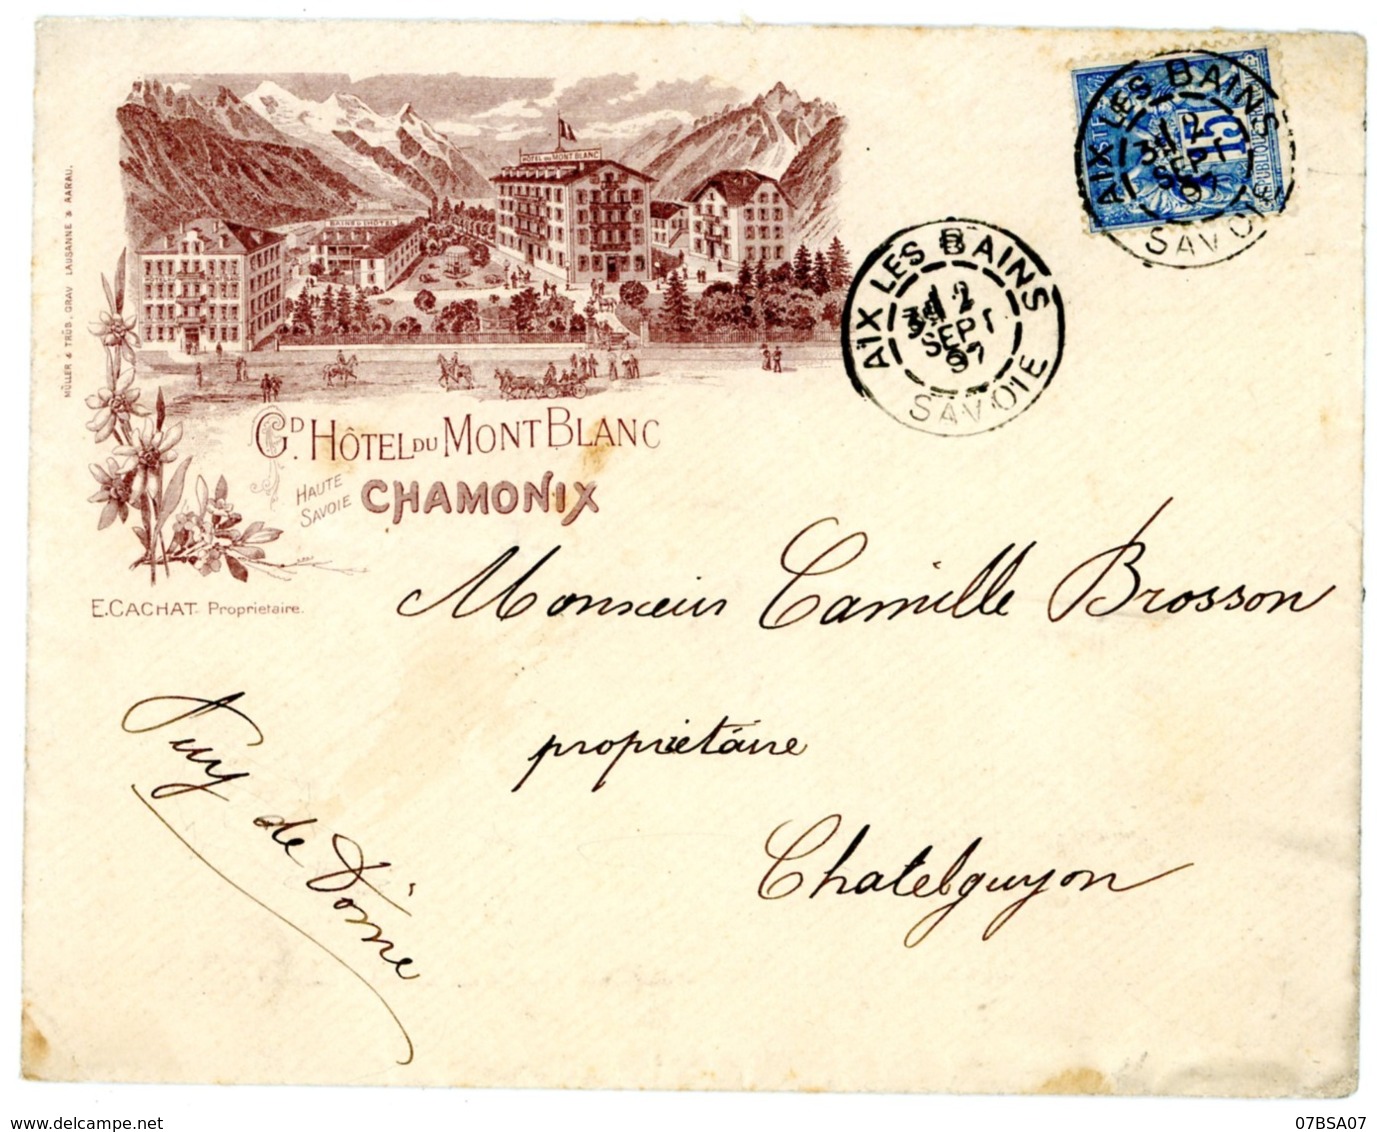 HÔTEL DU MONT BLANC
BAINS DE L'HÔTEL
MÜLLER & TRÜB, GRAV. LAUSANNE & AARAU.
GD. HÔTEL DU MONT BLANC
HAUTE SAVOIE
CHAMONIX
E. CACHAT Propriétaire.
AIX LES BAINS
SEPT
97
SAVOIE
15
AIX LES BAINS
SEPT
SAVOIE
Monsieur Camille Brosson
propriétaire
Chatelguyon
Puy de Dôme
07BSA07
delcampe.net